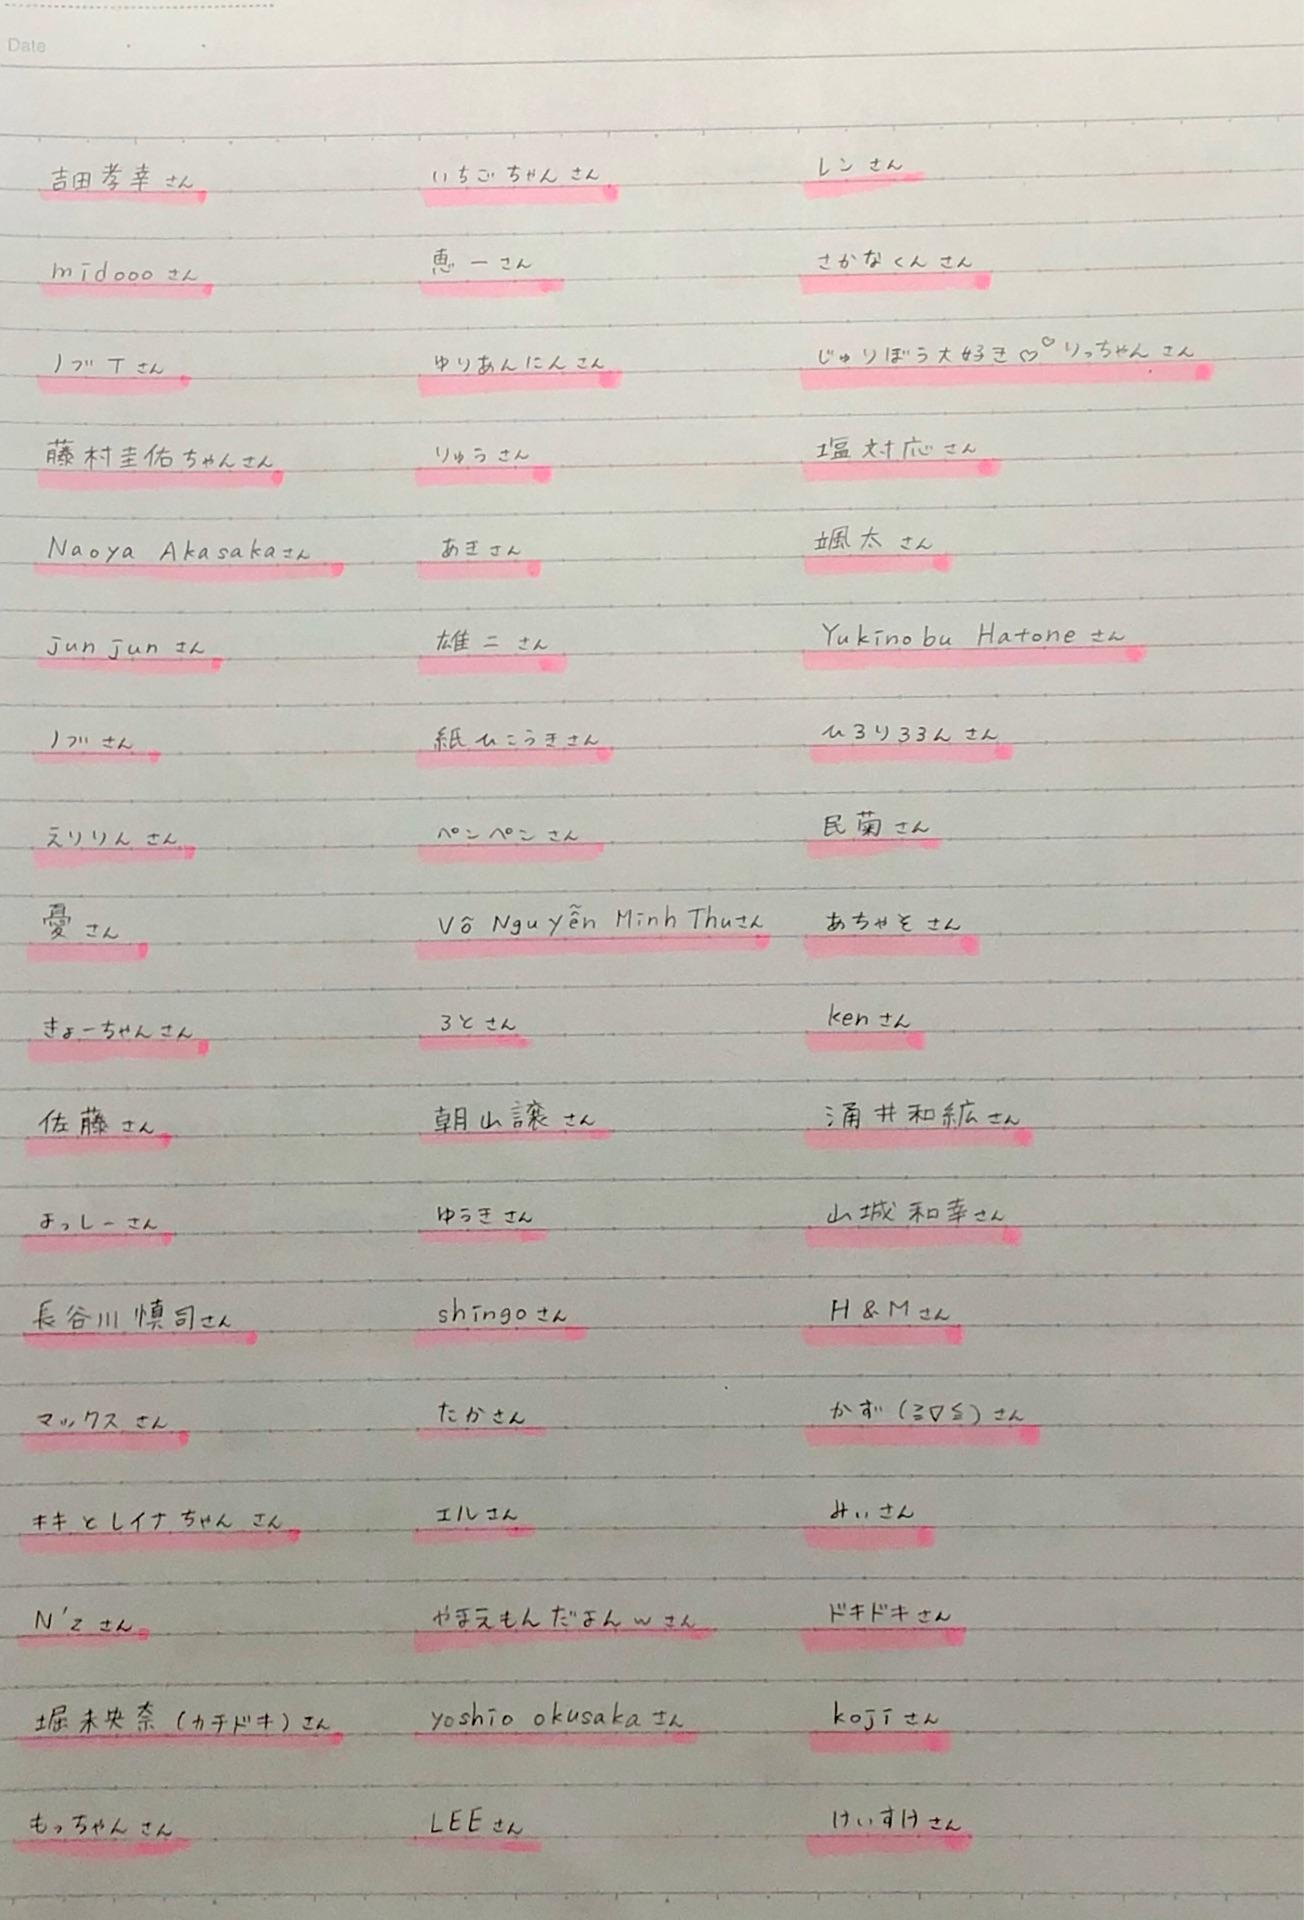 Date
吉田孝幸さん いちごちゃんさん レンさん
midoooさん 恵一さん さかなくんさん
ノブTさん ゆりあんにんさん じゅりぼう大好き♡♡りっちゃんさん
藤村圭佑ちゃんさん りゅうさん 塩対応さん
Naoya Akasakaさん あきさん 颯太さん
jun junさん 雄二さん Yukinobu Hatoneさん
ノブさん 紙ひこうきさん ひろりろろんさん
えりりんさん ペンペンさん 民菊さん
憂さん Võ Nguyễn Minh Thuさん あちゃそさん
きょーちゃんさん ろとさん kenさん
佐藤さん 朝山譲さん 涌井和紘さん
よっしーさん ゆうきさん 山城和幸さん
長谷川慎司さん shingoさん H&Mさん
マックスさん たかさん かず(≧∇≦)さん
キキとレイナちゃんさん エルさん みぃさん
N'zさん やまえもんだよんwさん ドキドキさん
堀未央奈(カチドキ)さん yoshio okusakaさん kojiさん
もっちゃんさん LEEさん けいすけさん